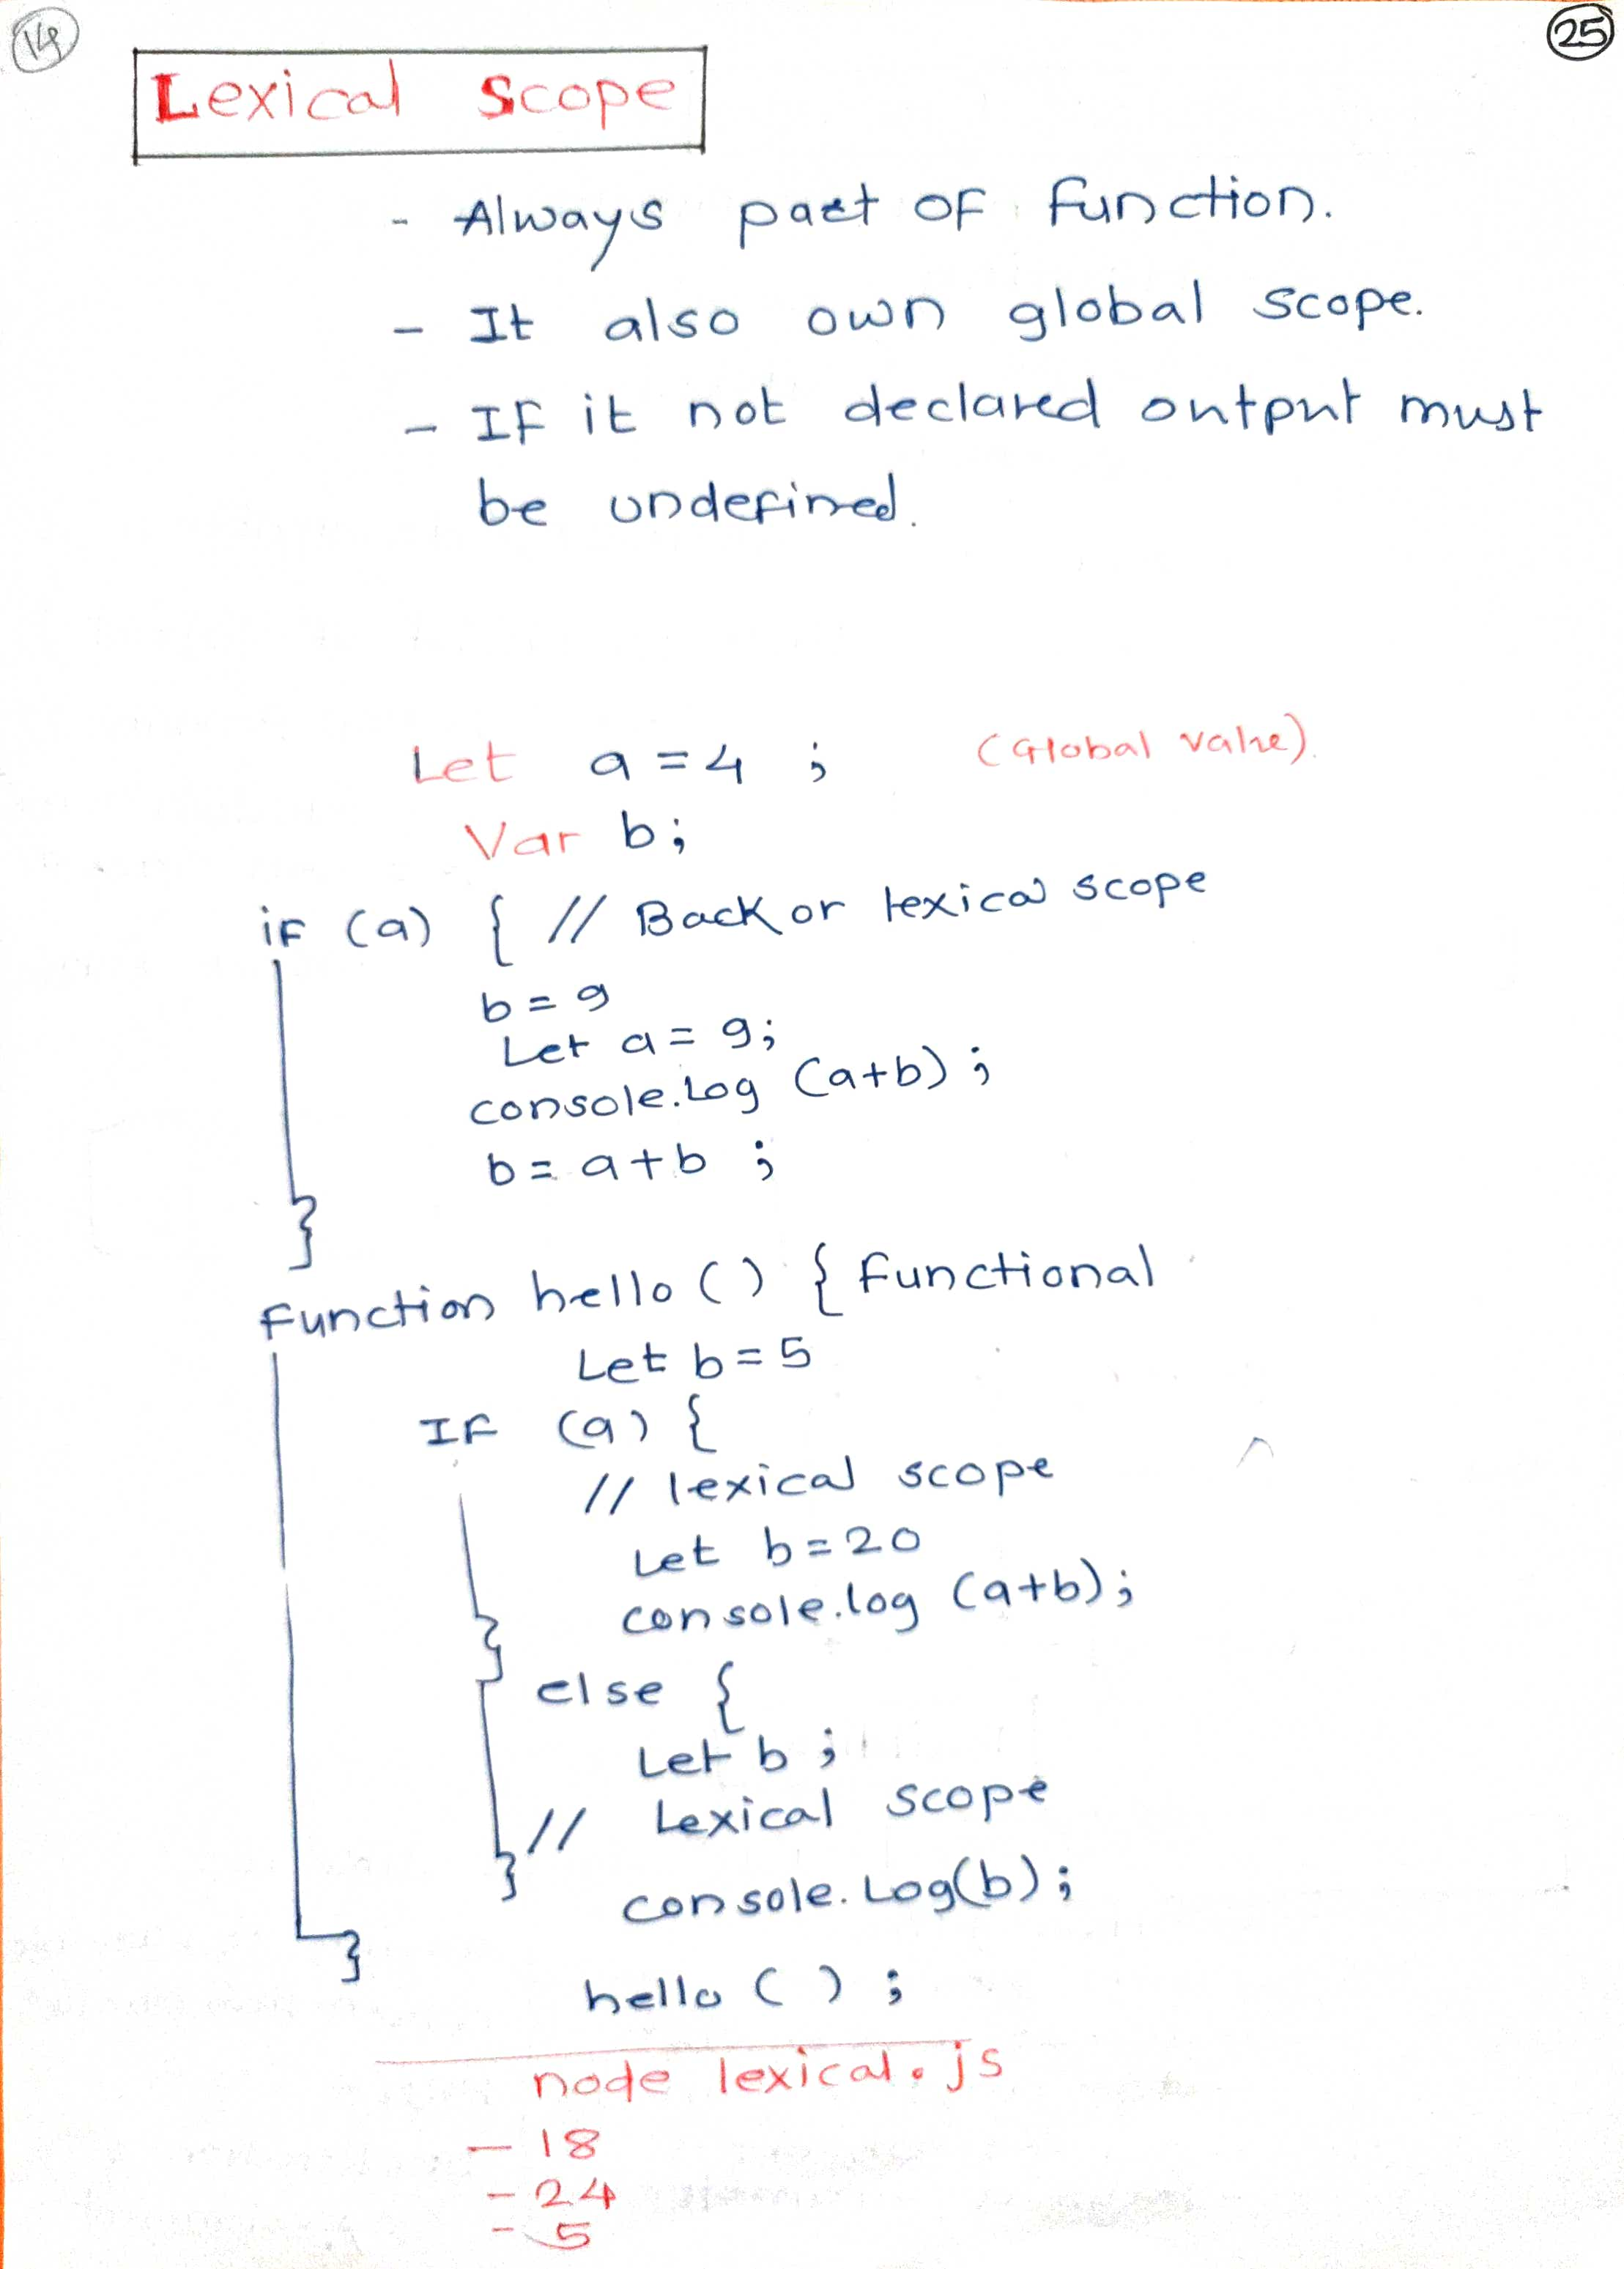 14
25
Lexical Scope
- Always part of function.
- It also own global scope.
- If it not declared output must
be undefined.
Let a = 4 ; (Global value).
Var b;
if (a) { // Back or lexical scope
b = 9
Let a = 9;
console.log (a+b) ;
b = a+b ;
}
Function hello () { functional
Let b = 5
If (a) {
// lexical scope
Let b = 20
console.log (a+b);
}
else {
Let b ;
// Lexical scope
}
console.Log(b);
}
hello ( ) ;
node lexical.js
- 18
- 24
- 5